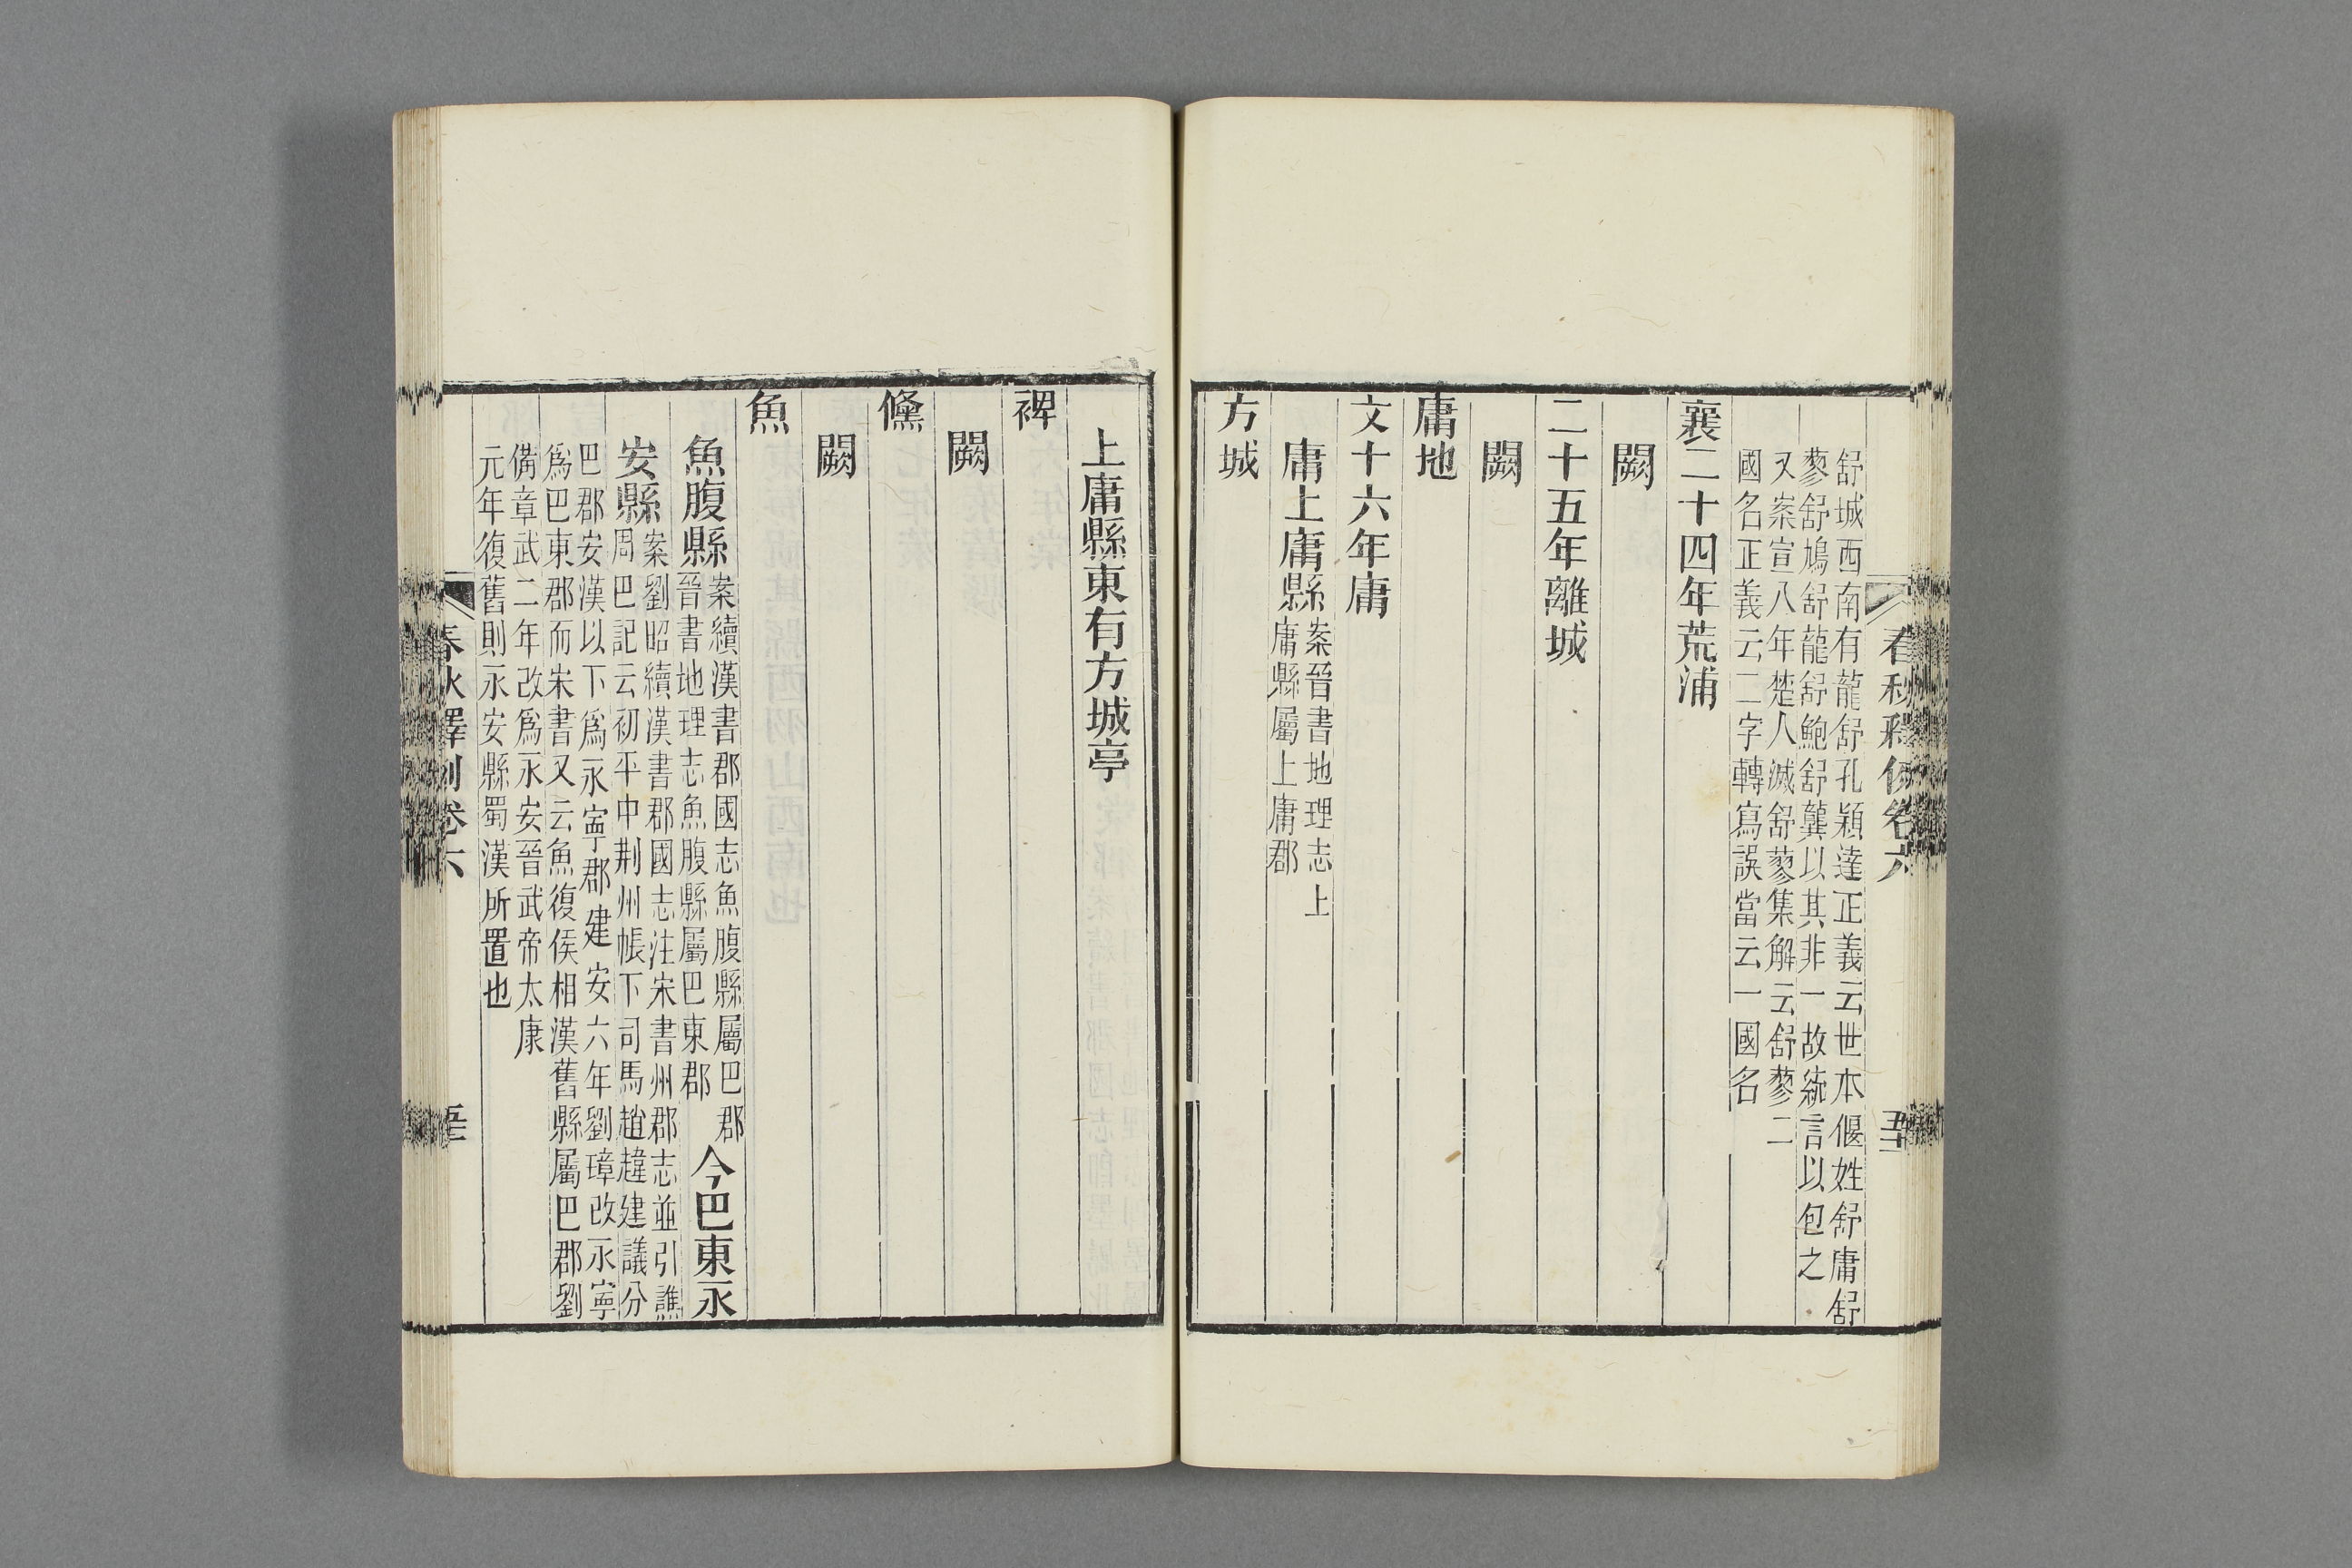 春秋釋例卷六
舒城西南有龍舒孔穎達正義云世本偃姓舒庸舒
蓼舒鳩舒龍舒鮑舒龔以其非一故統言以包之
又案宣八年楚人滅舒蓼集解云舒蓼二
國名正義云二字轉寫誤當云一國名
襄二十四年荒浦
闕
二十五年離城
闕
庸地
文十六年庸
庸上庸縣案晉書地理志上
庸縣屬上庸郡
方城
上庸縣東有方城亭
裨
闕
儵
闕
魚
魚腹縣案續漢書郡國志魚腹縣屬巴郡
晉書地理志魚腹縣屬巴東郡今巴東永
安縣案劉昭續漢書郡國志注宋書州郡志並引譙
周巴記云初平中荆州帳下司馬趙韙建議分
巴郡安漢以下爲永寧郡建安六年劉璋改永寧
爲巴東郡而宋書又云魚復侯相漢舊縣屬巴郡劉
備章武二年改爲永安晉武帝太康
元年復舊則永安縣蜀漢所置也
春秋釋例卷六